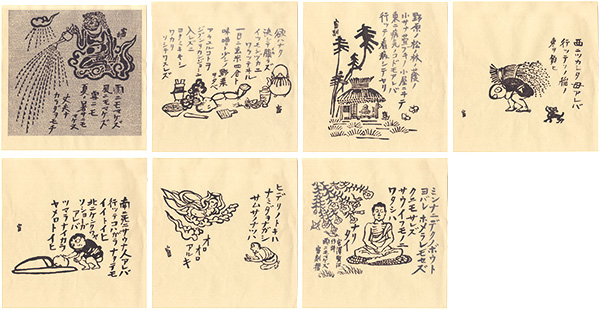 雨ニモマケズ
風ニモマケズ
雪ニモ
夏ノ暑サニモマケヌ
丈夫ナ
カラダヲモチ
慾ハナク
決シテ瞋ラズ
イツモシヅカニ
ワラッテヰル
一日ニ玄米四合ト
味噌ト少シノ野菜ヲ
タベ
アラユルコトヲ
ジブンヲカンジョウニ
入レズニ
ヨクミキキシ
ワカリ
ソシテワスレズ
野原ノ松ノ林ノ蔭ノ
小サナ萱ブキノ小屋ニヰテ
東ニ病気ノコドモアレバ
行ッテ看病シテヤリ
西ニツカレタ母アレバ
行ッテソノ稲ノ
束ヲ負ヒ
南ニ死ニサウナ人アレバ
行ッテコハガラナクテモ
イイトイヒ
北ニケンクヮヤ
ソショウガ
アレバ
ツマラナイカラ
ヤメロトイヒ
ヒデリノトキハ
ナミダヲナガシ
サムサノナツハ
オロ
オロ
アルキ
ミンナニデクノボウト
ヨバレ ホメラレモセズ
クニモサレズ
サウイフモノニ
ワタシハ
ナリタイ
宮澤賢治